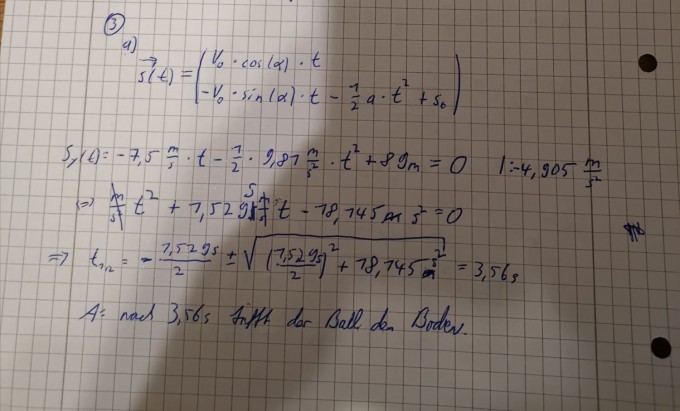 ③
a)
s⃗(t) = ( v₀ · cos(α) · t
-v₀ · sin(α) · t - 1/2 a · t² + s₀ )
Sy(t) = -7,5 m/s · t - 1/2 · 9,81 m/s² · t² + 89m = 0 | : -4,905 m/s²
⇒ t² + 1,529 s t - 18,145 s² = 0
⇒ t₁/₂ = - 1,529s/2 ± √((1,529s/2)² + 18,145 s²) = 3,56s
A: nach 3,56s trifft der Ball den Boden.